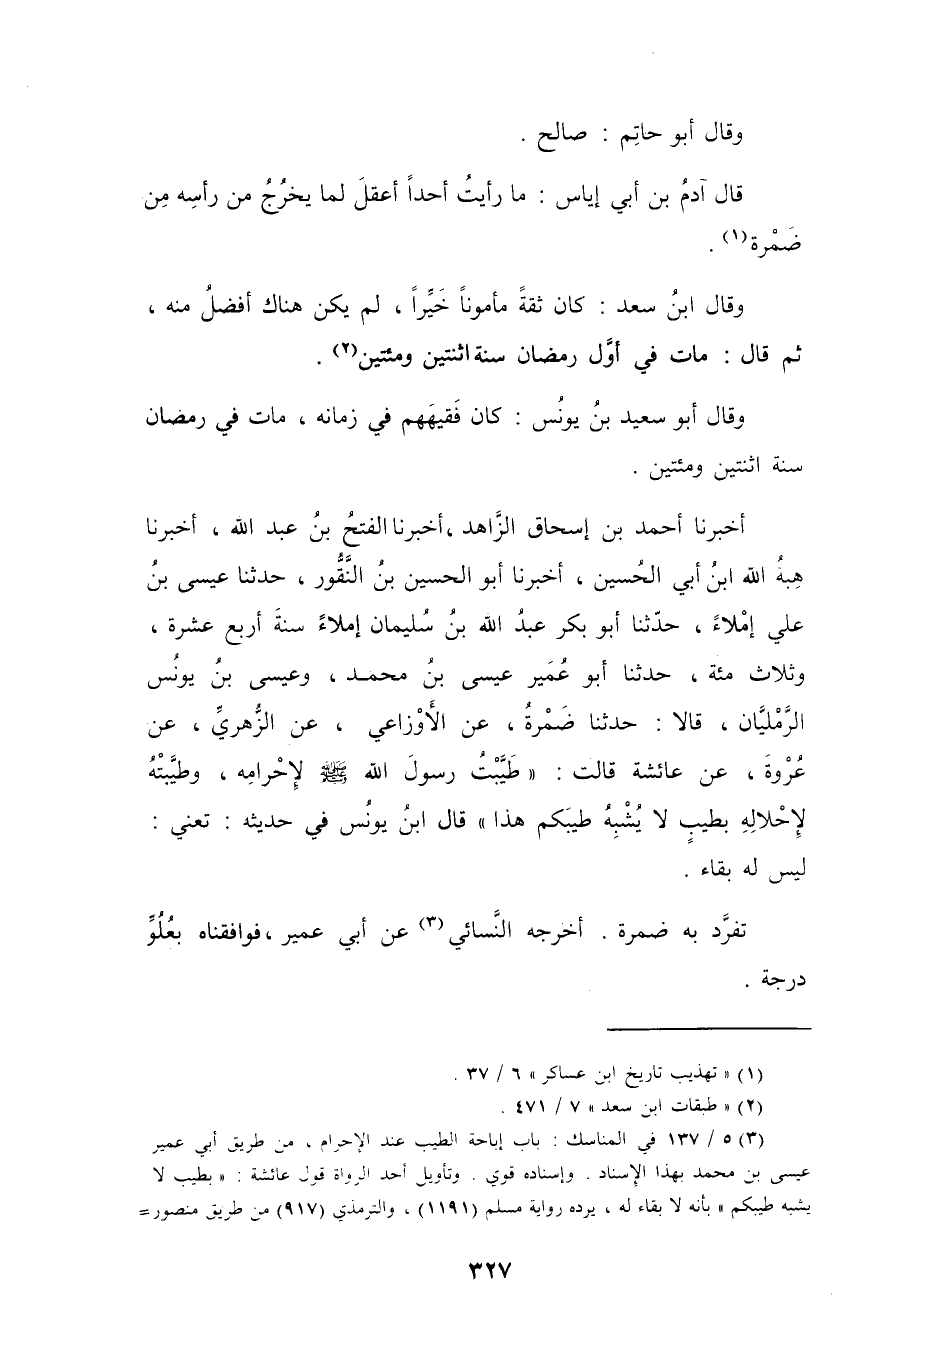 وقال أبو حاتِم : صالح .
قال آدمُ بن أبي إياس : ما رأيتُ أحداً أعقلَ لما يخرُجُ من رأسِه مِن
ضَمْرة(١) .
وقال ابنُ سعد : كان ثقةً مأموناً خَيِّراً ، لم يكن هناك أفضلُ منه ،
ثم قال : مات في أوَّل رمضان سنة اثنتين ومئتين(٢) .
وقال أبو سعيد بنُ يونُس : كان فَقيهَهم في زمانه ، مات في رمضان
سنة اثنتين ومئتين .
أخبرنا أحمد بن إسحاق الزَّاهد ،أخبرنا الفتحُ بنُ عبد الله ، أخبرنا
هِبةُ الله ابنُ أبي الحُسين ، أخبرنا أبو الحسين بنُ النَّقُّور ، حدثنا عيسى بنُ
علي إمْلاءً ، حدّثنا أبو بكر عبدُ الله بنُ سُليمان إملاءً سنةَ أربع عشرة ،
وثلاث مئة ، حدثنا أبو عُمَير عيسى بنُ محمـد ، وعيسى بنُ يونُس
الرَّمْليَّان ، قالا : حدثنا ضَمْرةُ ، عن الأَوْزاعي ، عن الزُّهريِّ ، عن
عُرْوةَ ، عن عائشة قالت : « طَيَّبْتُ رسولَ الله ﷺ لإِحْرامِه ، وطيَّبْتْهُ
لإِحْلالِهِ بطيبٍ لا يُشْبِهُ طيبَكم هذا » قال ابنُ يونُس في حديثه : تعني :
ليس له بقاء .
تفرَّد به ضمرة . أخرجه النَّسائي(٣) عن أبي عمير ،فوافقناه بعُلُوِّ
درجة .
(١) « تهذيب تاريخ ابن عساكر » ٦ / ٣٧ .
(٢) « طبقات ابن سعد » ٧ / ٤٧١ .
(٣) ٥ / ١٣٧ في المناسك : باب إباحة الطيب عند الإحرام ، من طريق أبي عمير
عيسى بن محمد بهذا الإسناد . وإسناده قوي . وتأويل أحد الرواة قول عائشة : « بطيب لا
يشبه طيبكم » بأنه لا بقاء له ، يرده رواية مسلم (١١٩١) ، والترمذي (٩١٧) من طريق منصور=
٣٢٧